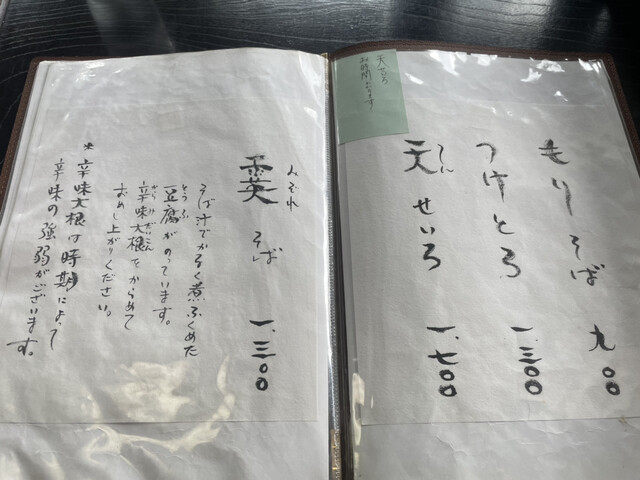 もりそば 九〇〇
つけとろ 一、三〇〇
天せいろ 一、七〇〇
天せいろ
みぞれ
霙 そば 一、三〇〇
そば汁でかるく煮ふくめた
豆腐がのっています。
辛味大根をからめて
おめし上がりください。
* 辛味大根は時期によって
辛味の強弱がございます。